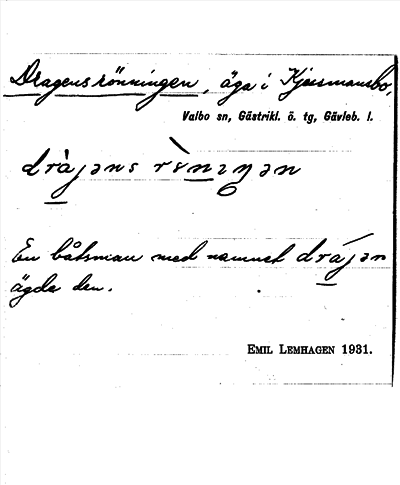 Dragensrönningen, äga i Kjessmansbo,
Valbo sn, Gästrikl. ö. tg, Gävleb. l.
En båtsman med namnet
ägde den.
EMIL LEMHAGEN 1931.